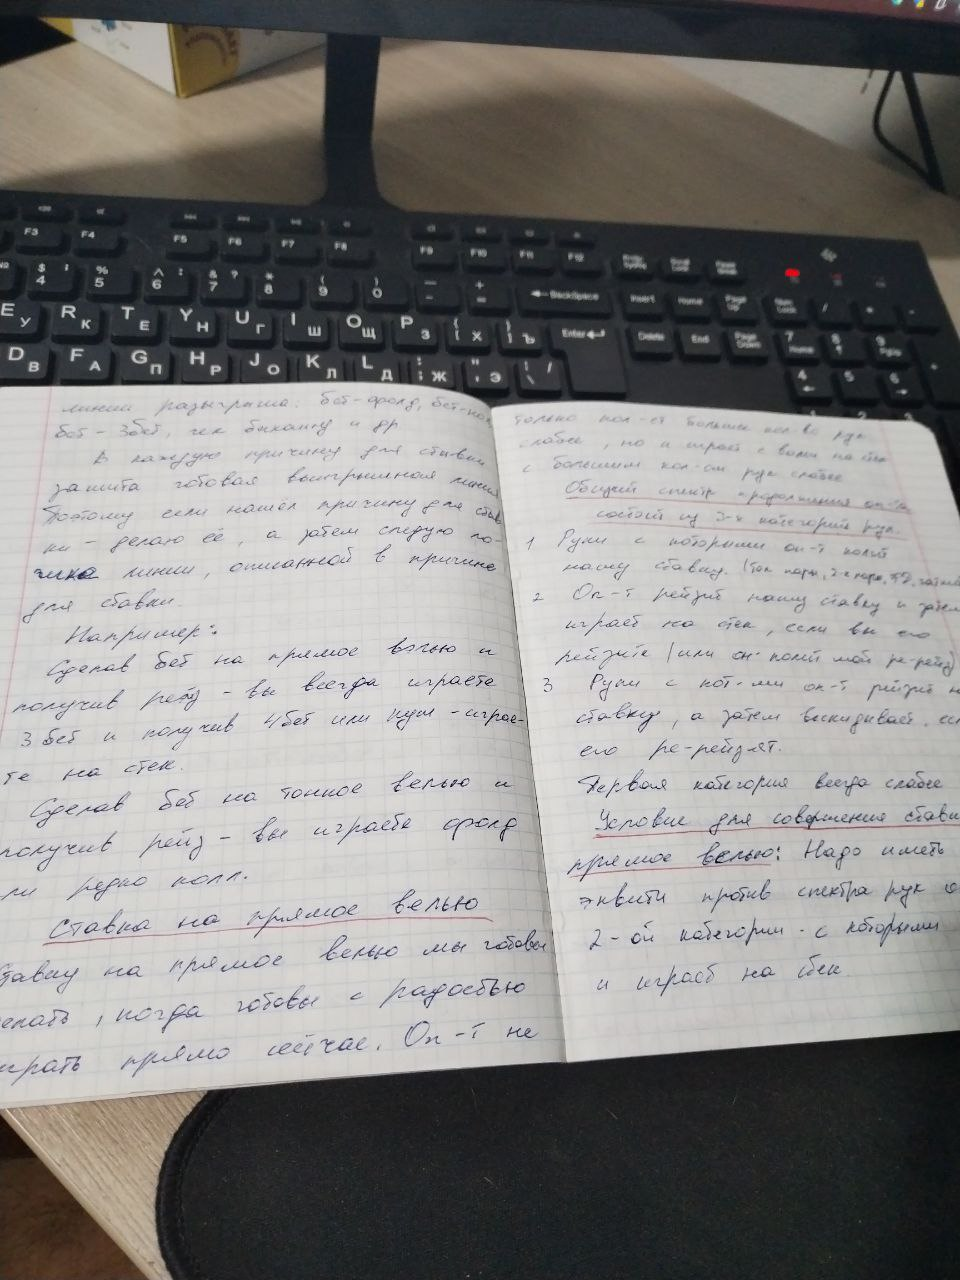 линии разыгрыша: бет-фолд, бет-кол
бет-3бет, чек бихаинд и др
В каждую причину для ставки
зашита готовая выигрышная линия
Поэтому если нашёл причину для став
ки - делаю её, а затем следую ло-
гике линии, описанной в причине
для ставки.
Например:
Сделав бет на прямое вэлью и
получив рейз - вы всегда играете
3 бет и получив 4бет или пуш - играе-
те на стек.
Сделав бет на тонкое велью и
получив рейз - вы играете фолд
ли редко колл.
Ставка на прямое велью
тавку на прямое велью мы готовы
елать, когда готовы с радостью
играть прямо сейчас. Оп-т не
только кол-ет большее кол-во рук
слабее, но и играет с вами на стек
с большим кол-ом рук слабее
Общий спектр продолжения оп-та
состоит из 3-х категорий рук.
1 Руки с которыми оп-т колит
нашу ставку. (топ пары, 2-е пары,
2 Оп-т рейзит нашу ставку и затем
играет на стек, если вы его
рейзите (или он колит мой ре-рейз)
3 Руки с кот-ми оп-т рейзит н
ставку, а затем выкидывает, есл
его ре-рейзят.
Первая категория всегда слабее
Условие для совершения ставки
прямое велью: Надо иметь
эквити против спектра рук о
2-ой категории - с которыми
и играет на стек
F3 F4 F5 F6 F7 F8 F9 F10 F11 F12
$ ; 4 % 5 ^ : 6 & ? 7 * 8 ( 9 ) 0 - + = BackSpace Insert Home Page Up Num Lock /
E У R К T Е Y Н U Г I Ш O Щ P З { [ Х } ] Ъ Enter Delete End Page Down 7 Home 8 9 PgUp
D В F А G П H Р J О K Л L Д : ; Ж " ' Э \ / 4 5 6